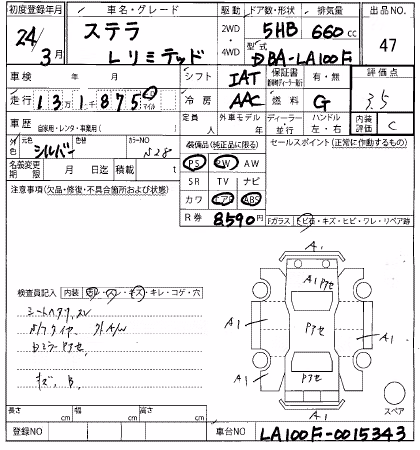 初度登録年月 車名・グレード 駆動 ドア数・形状 排気量 出品NO.
24年 3月 ステラ Lリミテッド 2WD・4WD 5HB 660cc 47
型式 DBA-LA100F
車検 年 月 シフト IAT 保証書 有・無 評価点
走行 13万1千875 km マイル 冷房 AAC 燃料 G 3.5
車歴 自家用・レンタ・事業用( ) 定員 人 外車モデル 年 ディーラー・並行 ハンドル 左・右 内装評価 C
外色 元色 シルバー 色替 カラーNO N28 装備品(純正品に限る) セールスポイント(正常に作動するもの)
名義変更期限 月 日 積載 t PS PW AW
注意事項(欠品・修復・不具合箇所および状態) SR TV ナビ
カワ エアB ABS
R券 8590円 Fガラス トビ石・キズ・ヒビ・ワレ・リペア跡
検査員記入 内装 ヨゴレ・スレ・キズ・キレ・コゲ・穴
A1
A1 アセ
A1 アセ A1
A1 アセ A1
A1
スペア
キズ、B、
長さ cm 幅 cm 高さ cm
登録NO 車台NO LA100F-0015343